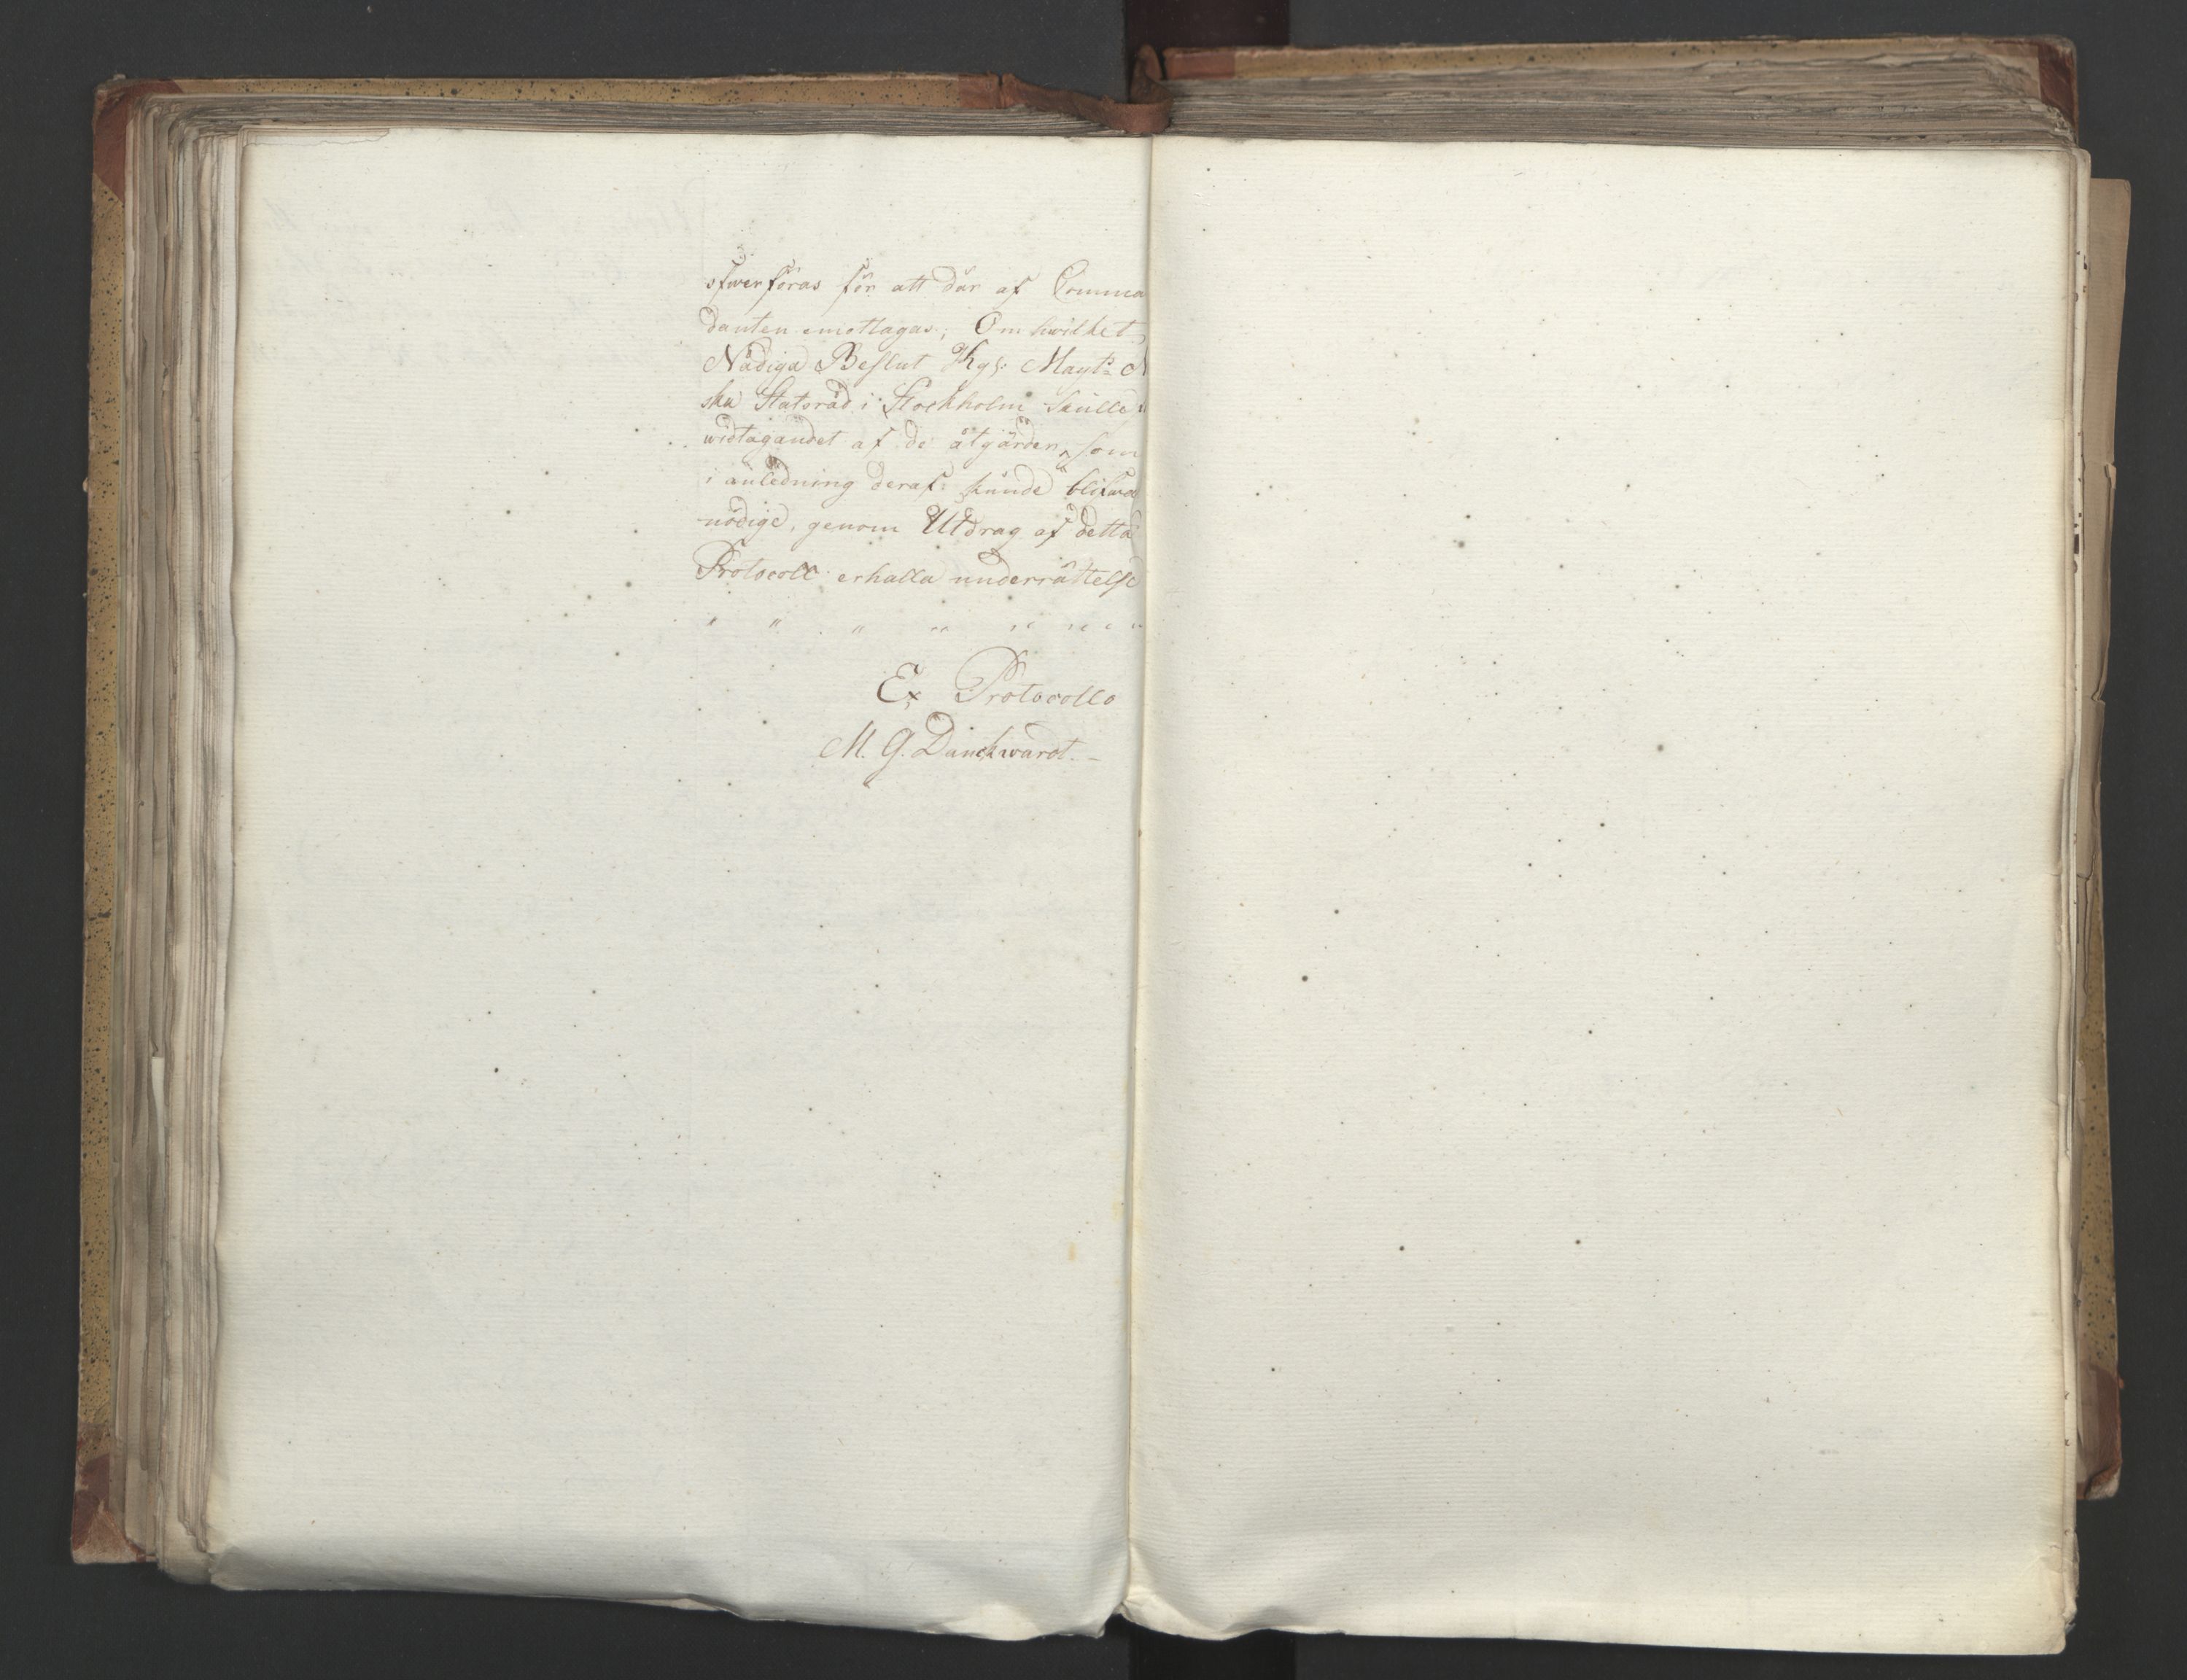 öfwerföras för att där af Comma
danten emottagas; Om hwilket
Nådiga Beslut Kgl: Mayts: N
ska Statsråd i Stockholm skulle
widtagandet af de åtgärder, som
i anledning deraf kunde blifwa
nödige, genom Utdrag af detta
Protocoll erhålla underrättelse
" " " " " " " "
Ex Protocollo
M. G. Danckwardt. –